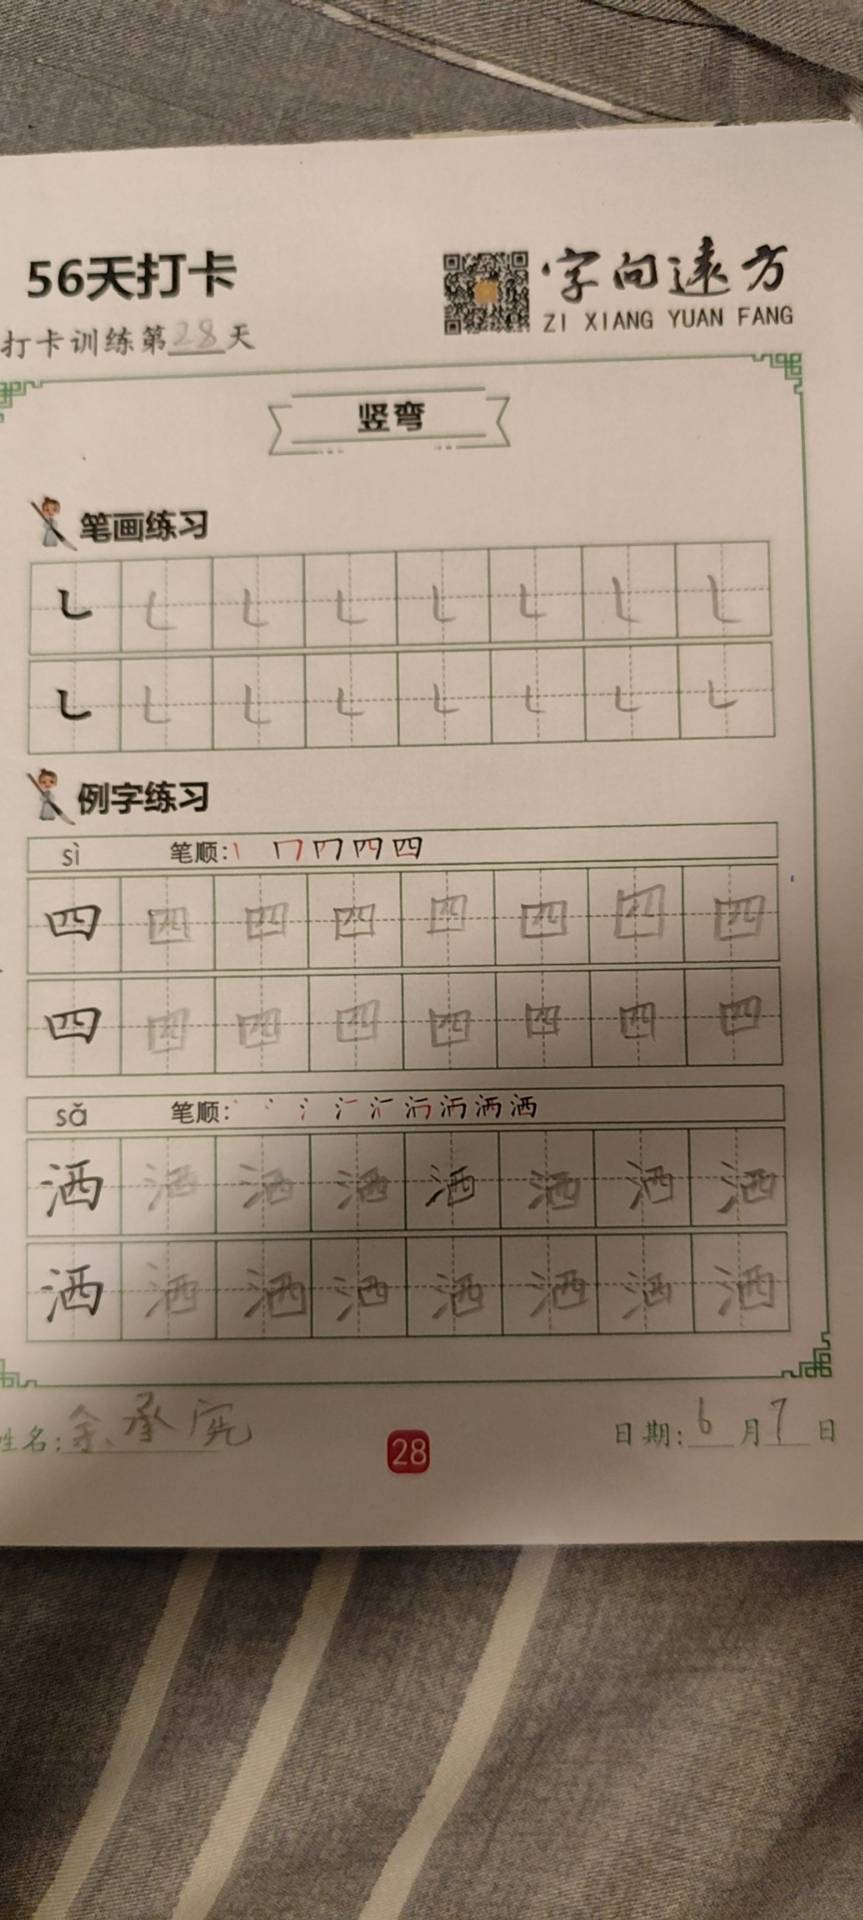 56天打卡
字向远方
ZI XIANG YUAN FANG
打卡训练第28天
竖弯
笔画练习
㇄ ㇄ ㇄ ㇄ ㇄ ㇄ ㇄ ㇄
㇄ ㇄ ㇄ ㇄ ㇄ ㇄ ㇄ ㇄
例字练习
sì 笔顺: 四
四 四 四 四 四 四 四 四
四 四 四 四 四 四 四 四
sǎ 笔顺: 洒
洒 洒 洒 洒 洒 洒 洒 洒
洒 洒 洒 洒 洒 洒 洒 洒
姓名: 余承宪
28
日期: 6月7日